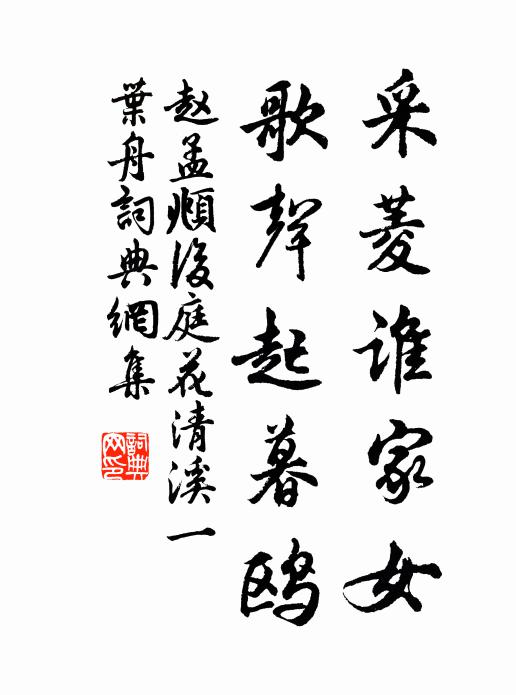 采菱谁家女
歌聲起暮鸥
赵孟頫後庭花清溪一
葉舟詞典網集
詞典
网印